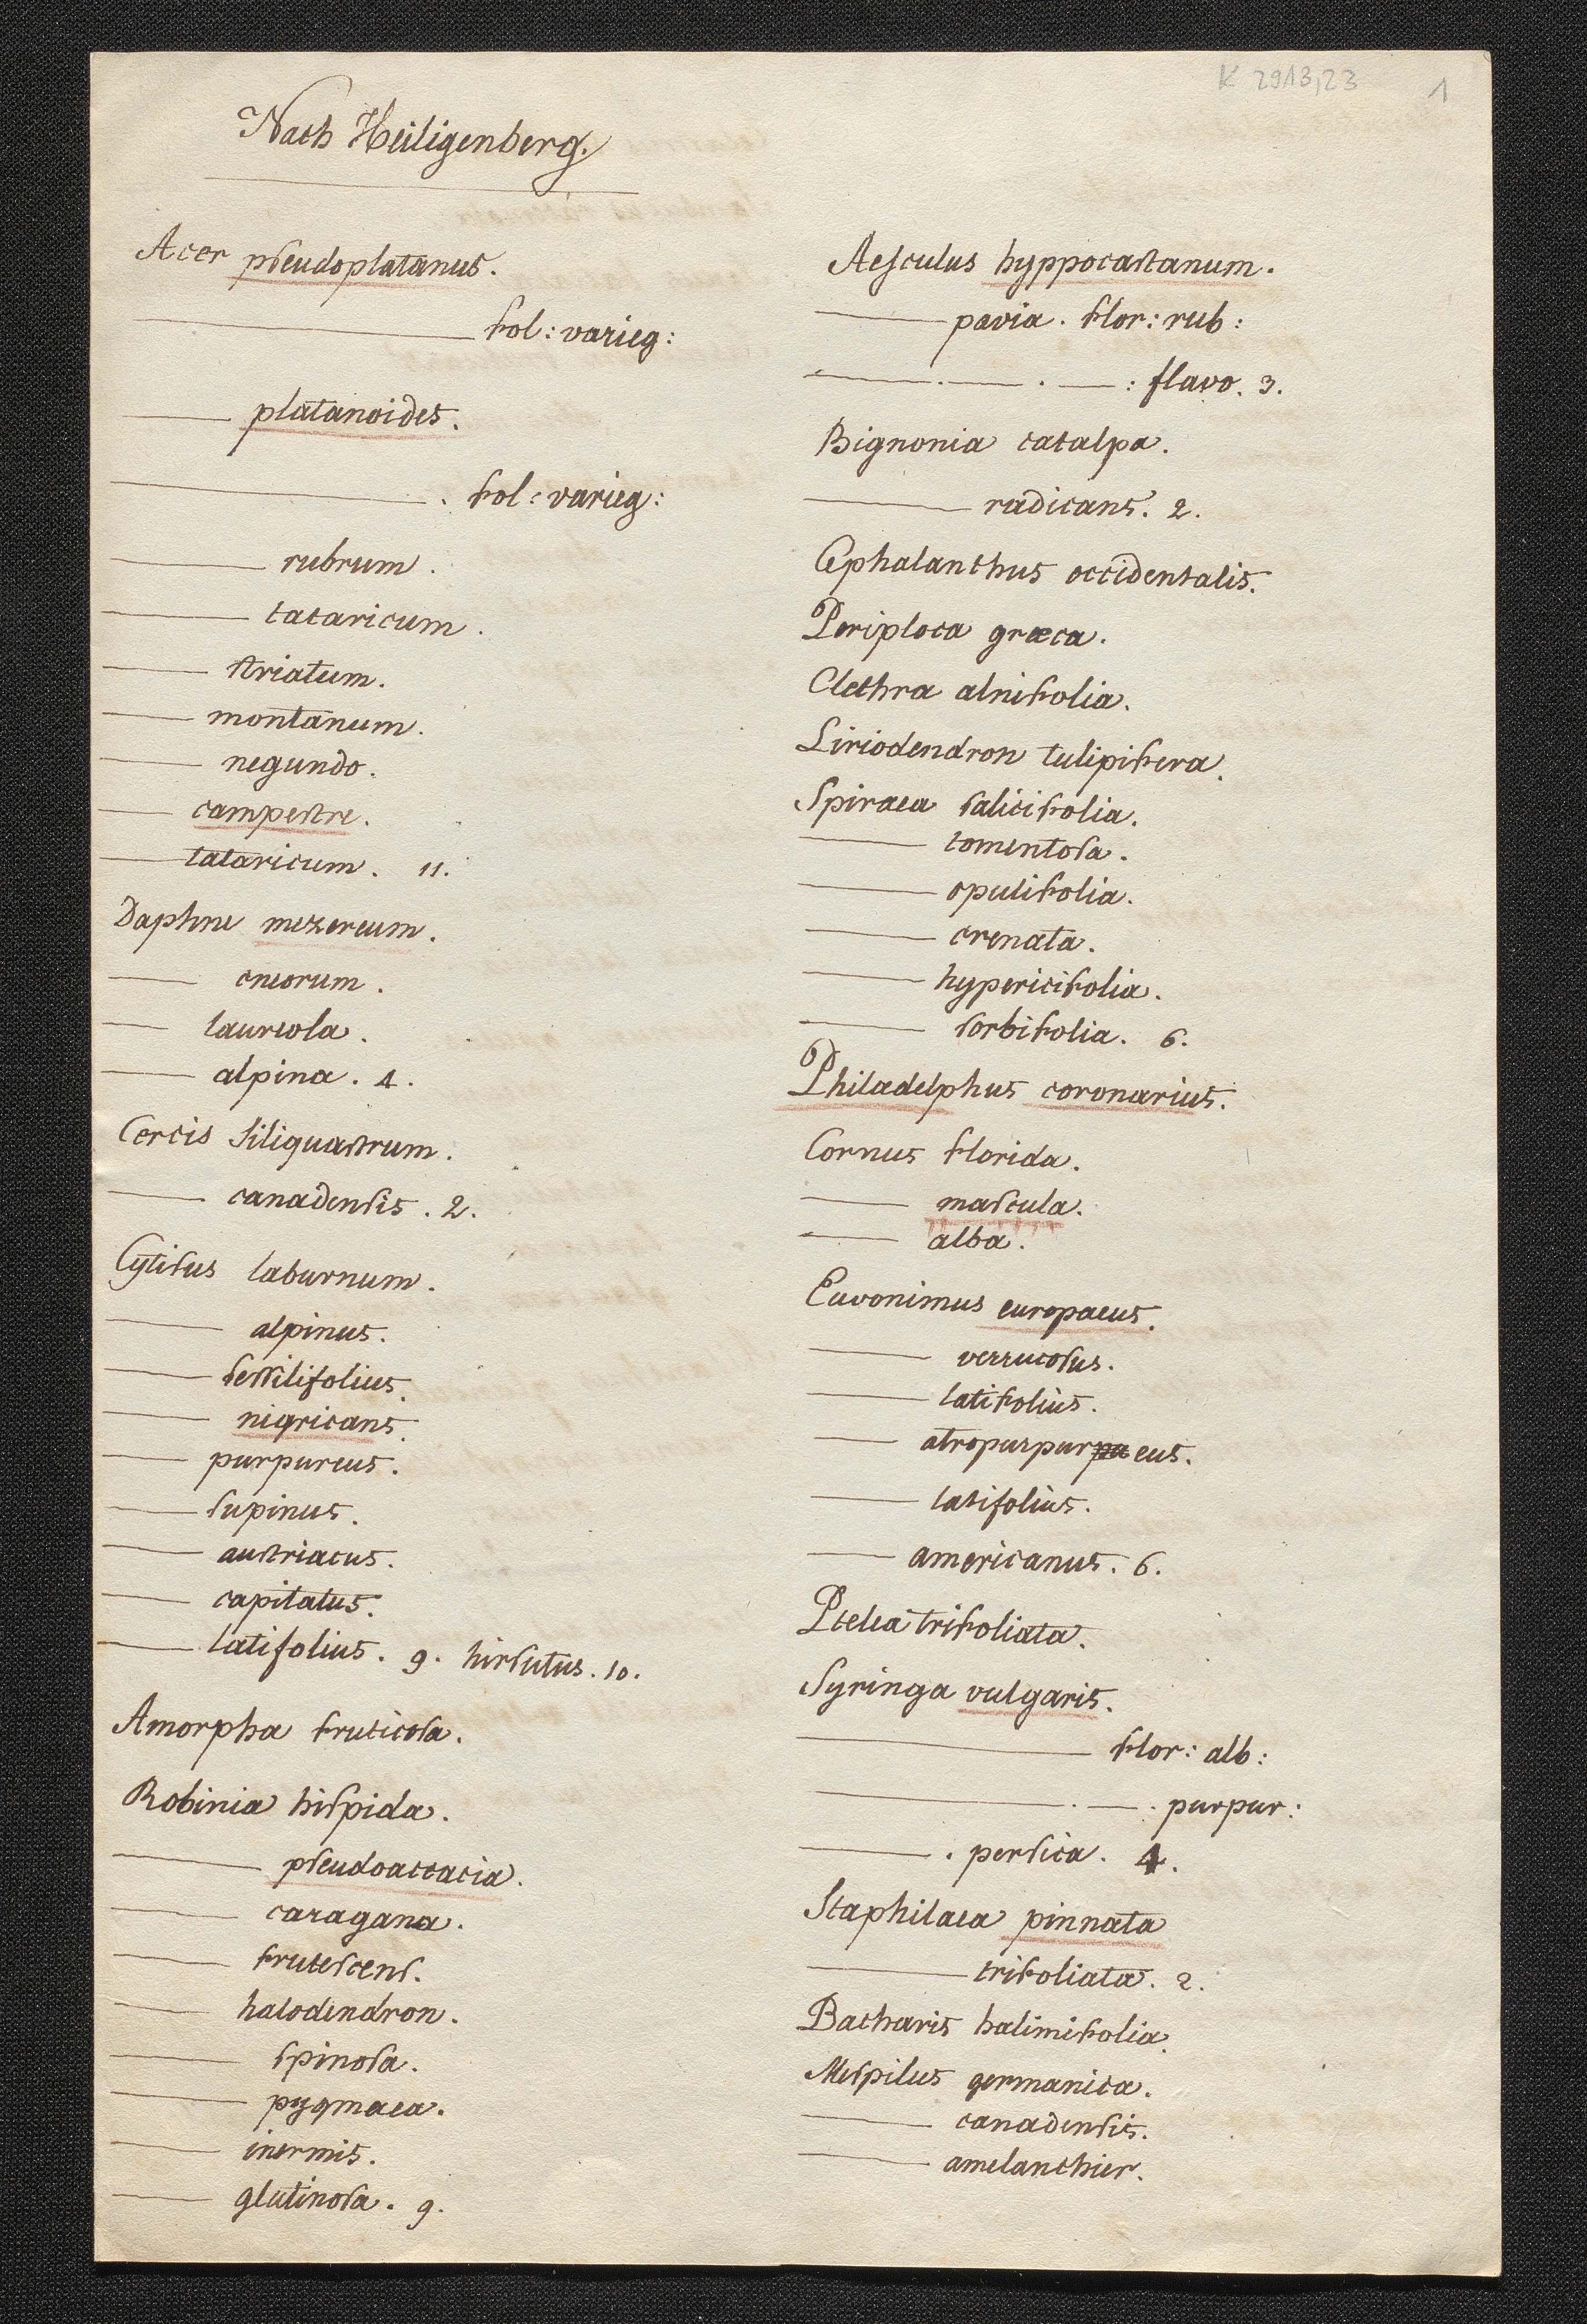 K 2913,23 1
Nach Heiligenberg.
Acer pseudoplatanus.
——— fol: varieg:
—— platanoides.
———. fol: varieg:
—— rubrum.
—— tataricum.
—— striatum.
—— montanum.
—— negundo.
—— campestre.
—— tataricum. 11.
Daphne mezereum.
—— cneorum.
—— laureola.
—— alpina. 4.
Cercis Siliquastrum.
—— canadensis. 2.
Cytisus laburnum.
—— alpinus.
—— sessilifolius.
—— nigricans.
—— purpureus.
—— supinus.
—— austriacus.
—— capitatus.
—— latifolius. 9. hirsutus. 10.
Amorpha fruticosa.
Robinia hispida.
—— pseudoaccacia.
—— caragana.
—— frutescens.
—— halodendron.
—— spinosa.
—— pygmaea.
—— inermis.
—— glutinosa. 9.
Aesculus hyppocastanum.
—— pavia. flor: rub:
——.——.——: flavo. 3.
Bignonia catalpa.
—— radicans. 2.
Cephalanthus occidentalis.
Periploca græca.
Clethra alnifolia.
Liriodendron tulipifera.
Spiraea salicifolia.
—— tomentosa.
—— opulifolia.
—— crenata.
—— hypericifolia.
—— sorbifolia. 6.
Philadelphus coronarius.
Cornus florida.
—— mascula.
—— alba.
Euvonimus europaeus.
—— verrucosus.
—— latifolius.
—— atropurpurpueus.
—— latifolius.
—— americanus. 6.
Ptelea trifoliata.
Syringa vulgaris.
——— flor: alb:
———.—. purpur:
——. persica. 4.
Staphilaea pinnata
—— trifoliata. 2.
Bacharis halimifolia.
Mespilus germanica.
—— canadensis.
—— amelanchier.